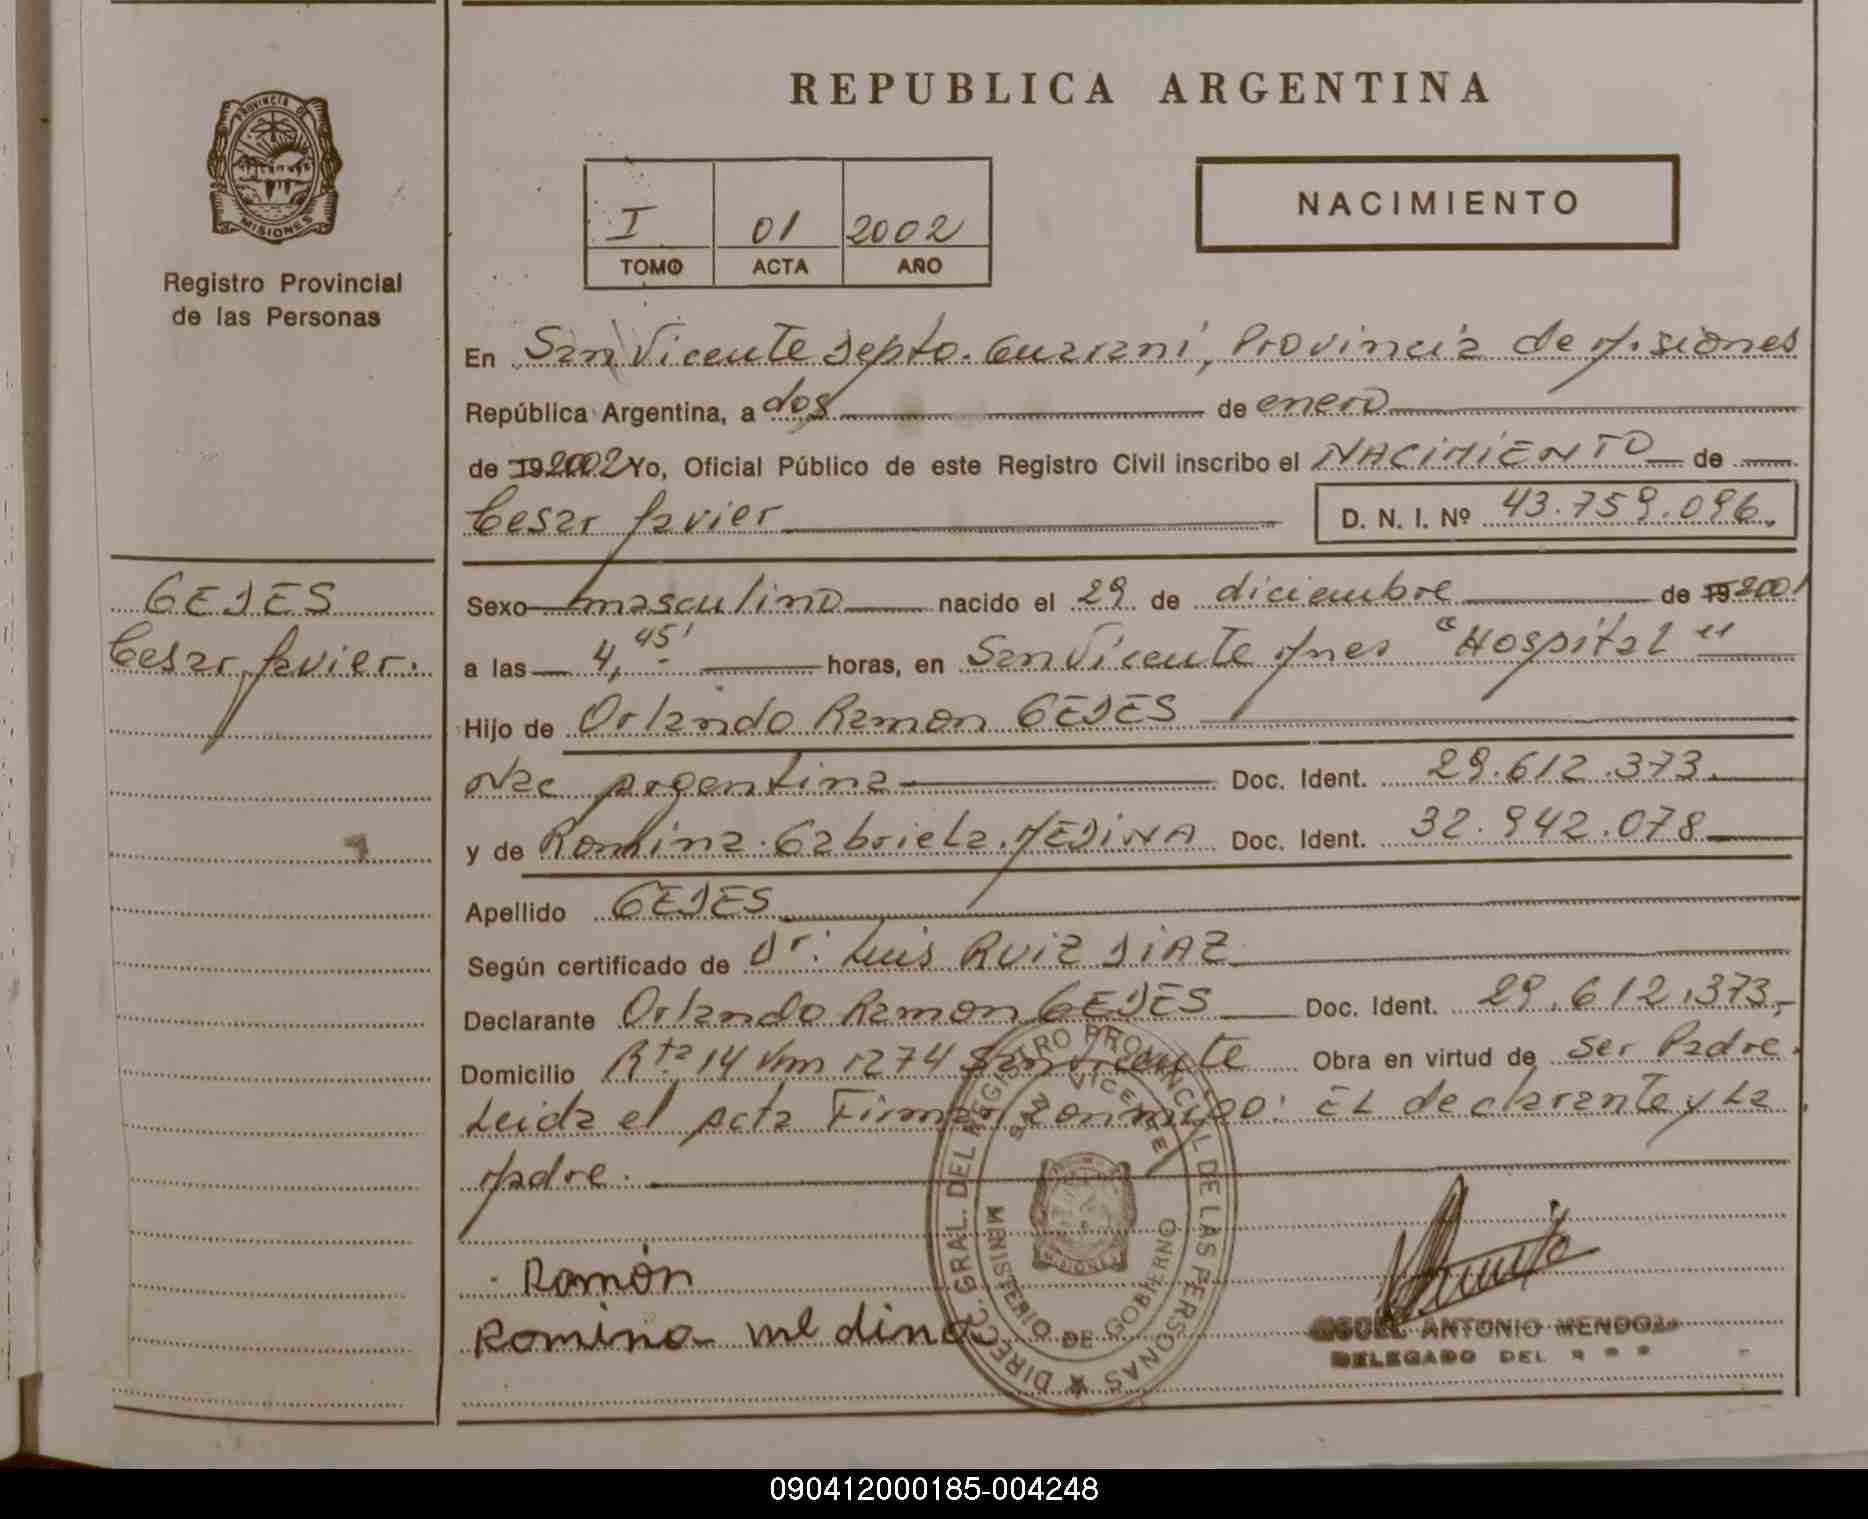 REPUBLICA ARGENTINA
PROVINCIA DE
MISIONES
Registro Provincial
de las Personas
I 01 2002
TOMO ACTA AÑO
NACIMIENTO
En San Vicente Depto. Guarani, Provincia de Misiones
República Argentina, a dos de enero
de 19 2002 Yo, Oficial Público de este Registro Civil inscribo el NACIMIENTO de
Cesar Javier D. N. I. Nº 43.759.096.
GEDES
Cesar Javier.
Sexo masculino nacido el 29 de diciembre de 19 2001
a las 4,45' horas, en San Vicente Mnes "Hospital"
Hijo de Orlando Ramon GEDES
Nac Argentina Doc. Ident. 29.612.373.
y de Romina Gabriela MEDINA Doc. Ident. 32.942.078
Apellido GEDES
Según certificado de Dr. Luis RUIZ DIAZ
Declarante Orlando Ramon GEDES Doc. Ident. 29.612.373.
Domicilio Rta 14 Km 1274 San Vicente Obra en virtud de ser Padre.
Leida el Acta Firman conmigo: EL declarante y La
Madre.
Ramón
Romina medina
DIREC. GRAL. DEL REGISTRO PROVINCIAL DE LAS PERSONAS
SAN VICENTE
MINISTERIO DE GOBIERNO
MISIONES
ANTONIO MENDOZA
DELEGADO DEL
090412000185-004248